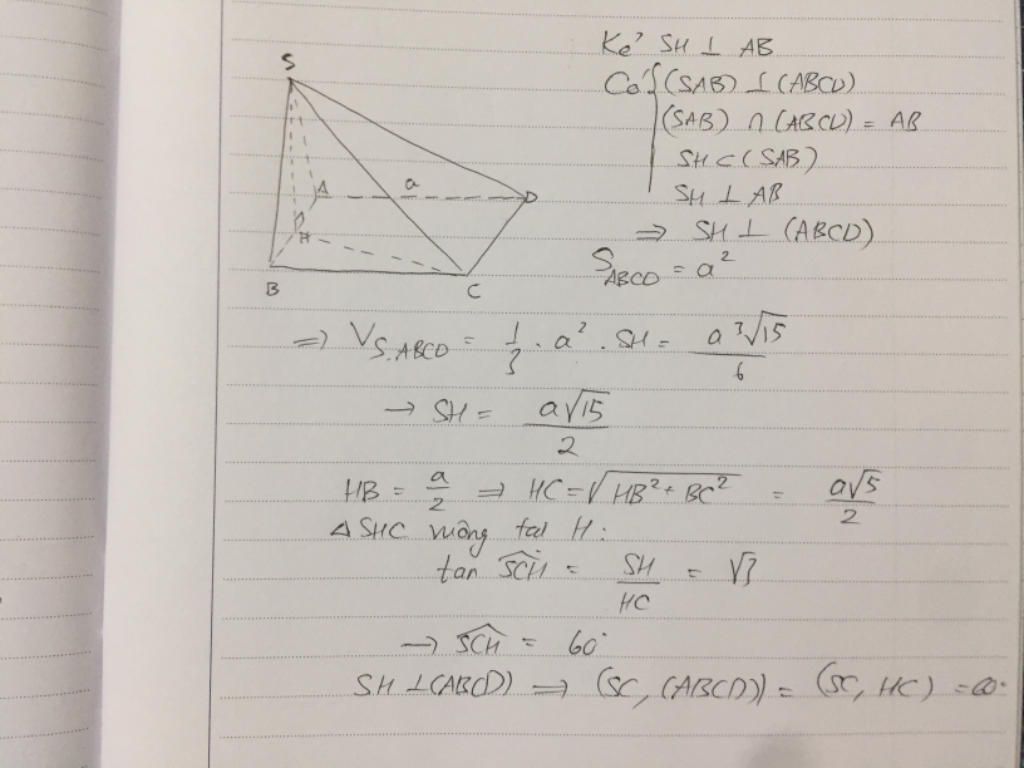 S
A
a
D
H
B
C
Kẻ SH ⊥ AB
Có { (SAB) ⊥ (ABCD)
(SAB) ∩ (ABCD) = AB
SH ⊂ (SAB)
SH ⊥ AB
⇒ SH ⊥ (ABCD)
S_ABCD = a²
⇒ V_S.ABCD = 1/3 . a² . SH = a³√15/6
→ SH = a√15/2
HB = a/2 ⇒ HC = √(HB² + BC²) = a√5/2
Δ SHC vuông tại H :
tan SCH = SH/HC = √3
→ SCH = 60°
SH ⊥ (ABCD) ⇒ (SC, (ABCD)) = (SC, HC) = 60°